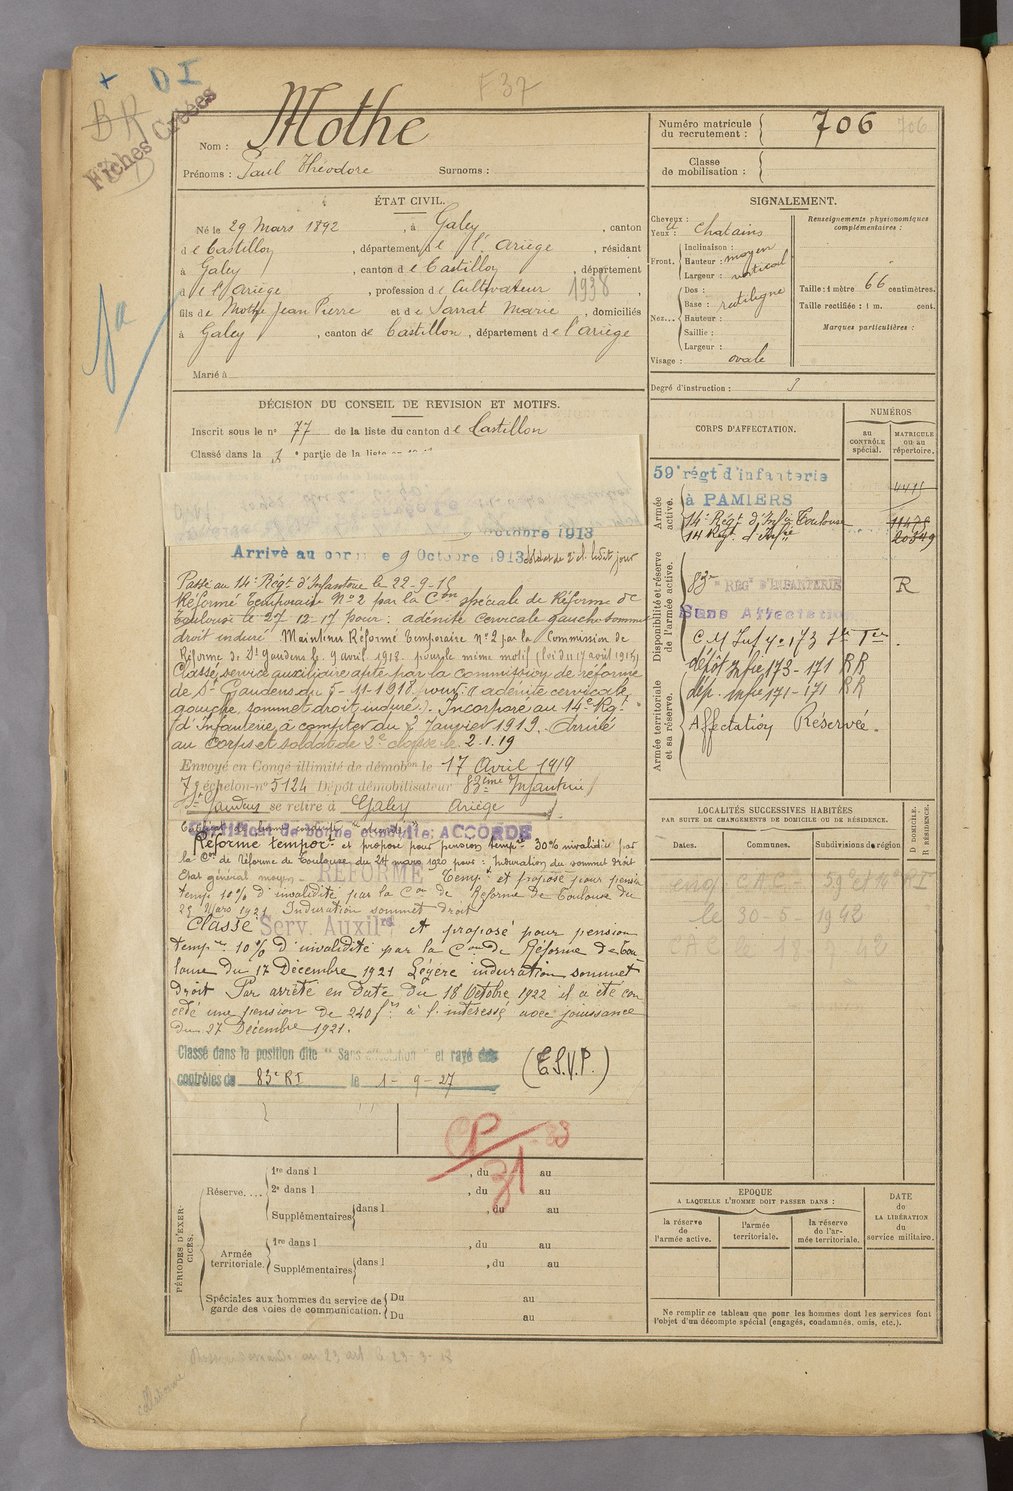 F 37
+ D I
BR
Fiches Créées
Nom : Mothe
Prénoms : Paul Théodore Surnoms :
Numéro matricule du recrutement : 706 706
Classe de mobilisation :
ÉTAT CIVIL.
Né le 29 Mars 1892, à Galey, canton
de Castillon, département de l'Ariège, résidant
à Galey, canton de Castillon, département
de l'Ariège, profession de Cultivateur 1938
fils de Mothe Jean Pierre et de Sarrat Marie, domiciliés
à Galey, canton de Castillon, département de l'Ariège
Marié à
SIGNALEMENT.
Cheveux : et
Yeux : chatains
Front. Inclinaison : moyen
Hauteur :
Largeur : vertical
Nez... Dos :
Base : rectiligne
Hauteur :
Saillie :
Largeur :
Visage : ovale
Renseignements physionomiques complémentaires :
Taille : 1 mètre 66 centimètres.
Taille rectifiée : 1 m. cent.
Marques particulières :
Degré d'instruction : 3
DÉCISION DU CONSEIL DE REVISION ET MOTIFS.
Inscrit sous le n° 77 de la liste du canton de Castillon
Classé dans la 1e partie de la liste en 191
octobre 1913
Arrivé au corps le 9 Octobre 1913 soldat de 2e cl. ledit jour
Passé au 14e Régt d'Infanterie le 22-9-15
Réformé Temporaire N°2 par la Con spéciale de Réforme de
Toulouse le 27-12-17 pour : adénite cervicale gauche sommet
droit induré. Maintenu Réformé temporaire N°2 par la Commission de
Réforme de St Gaudens le 9 avril 1918 pour le même motif (loi du 17 août 1915)
Classé service auxiliaire apte par la commission de réforme
de St Gaudens du 5-11-1918 pour « adénite cervicale
gauche, sommet droit induré ». Incorporé au 14e Rgt
d'Infanterie à compter du 2 Janvier 1919. Arrivé
au corps et soldat de 2e classe le 2.1.19
Envoyé en Congé illimité de démobon le 17 Avril 1919
7e échelon n° 5124 Dépôt démobilisateur 83ème Infanterie
St Gaudens se retire à Galey Ariège
Certificat de bonne conduite ACCORDÉ
Réforme tempore et proposé pour pension tempre 30% invalidité par
la Con de Réforme de Toulouse du 24 mars 1920 pour : Induration du sommet droit
Etat général moyen - RÉFORMÉ Tempre et proposé pour pension
temp. 10% d'invalidité par la Con de Réforme de Toulouse du
25 Mars 1921 Induration sommet droit
Classé Serv. Auxilre et proposé pour pension
tempre 10% d'invalidité par la Con de Réforme de Tou-
louse du 17 Décembre 1921 Légère induration sommet
droit Par arrêté en date du 18 Octobre 1922 il a été con
cédé une pension de 240 frs à l'intéressé avec jouissance
du 27 Décembre 1921.
Classé dans la position dite "Sans affectation" et rayé des
contrôles du 83e RI le 1-9-27 (T.S.V.P.)
CORPS D'AFFECTATION.
NUMÉROS
au CONTRÔLE spécial.
MATRICULE ou au répertoire.
Armée active.
59e régt d'infanterie
à PAMIERS
14e Régt d'Infie Toulouse 11475
14 Régt d'Infie 20349
Disponibilité et réserve de l'armée active.
83e REGT D'INFANTERIE R
Sans Affectation
C M Inf 4e 173
dépôt Infie 173 - 171 RR
dép. Infie 171 - 171 RR
Armée territoriale et sa réserve.
Affectation Réservée.
LOCALITÉS SUCCESSIVES HABITÉES
PAR SUITE DE CHANGEMENTS DE DOMICILE OU DE RÉSIDENCE.
Dates. Communes. Subdivisions de région D DOMICILE. R RÉSIDENCE.
59e et 14e RI
le 30-5-1942
CP 83
31
PÉRIODES D'EXERCICES.
Réserve.... 1re dans l , du au
2e dans l , du au
Supplémentaires dans l , du au
Armée territoriale. 1re dans l , du au
Supplémentaires dans l , du au
Spéciales aux hommes du service de garde des voies de communication. Du au
Du au
ÉPOQUE
A LAQUELLE L'HOMME DOIT PASSER DANS :
la réserve de l'armée active.
l'armée territoriale.
la réserve de l'armée territoriale.
DATE de LA LIBÉRATION du service militaire.
Ne remplir ce tableau que pour les hommes dont les services font
l'objet d'un décompte spécial (engagés, condamnés, omis, etc.).